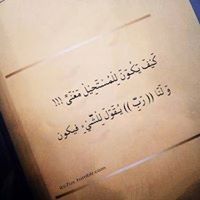 كَيفَ يَكُونَ لِلمُستَحِيلِ مَعنَىً !!!
وَ لَنَا (( رَبّ )) يُقُولَ لِلشَيْءِ فيكون